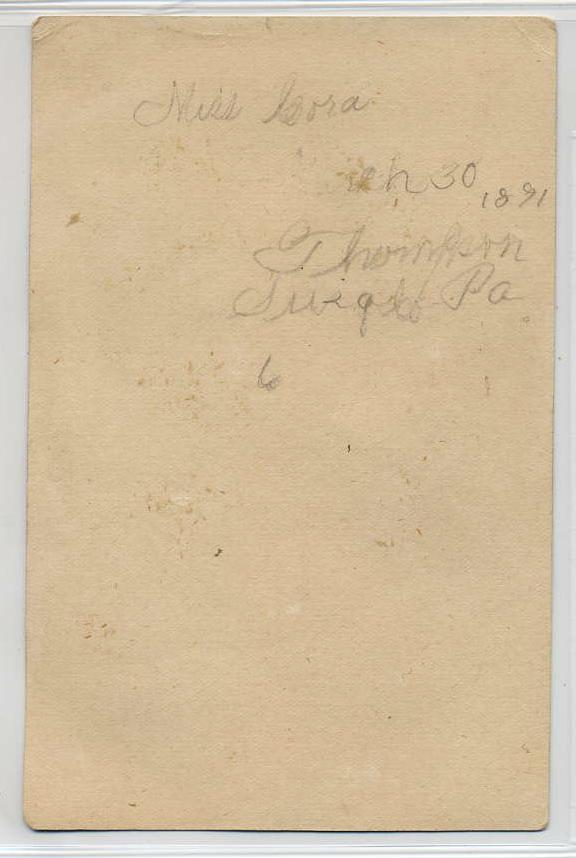 Miss Cora
30 1891
Thompson
Pa
6